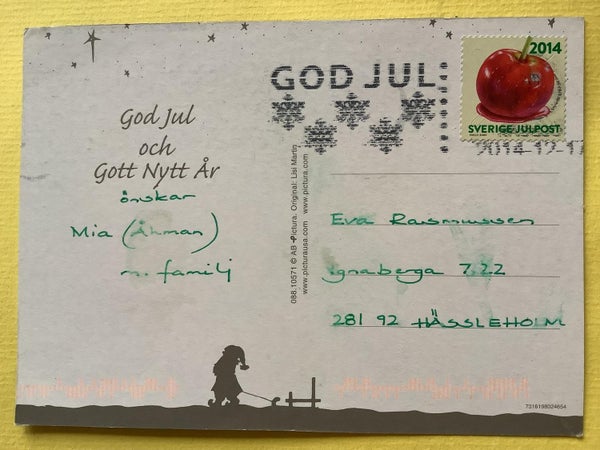 God Jul
och
Gott Nytt År
önskar
Mia (Åhman)
m. familj
GOD JUL
2014
SVERIGE JULPOST
2014-12-17
088.10571 © AB Pictura. Original: Lisi Martin
www.picturausa.com www.pictura.com
Eva Rasmussen
Ignaberga 722
281 92 HÄSSLEHOLM
7316198024654